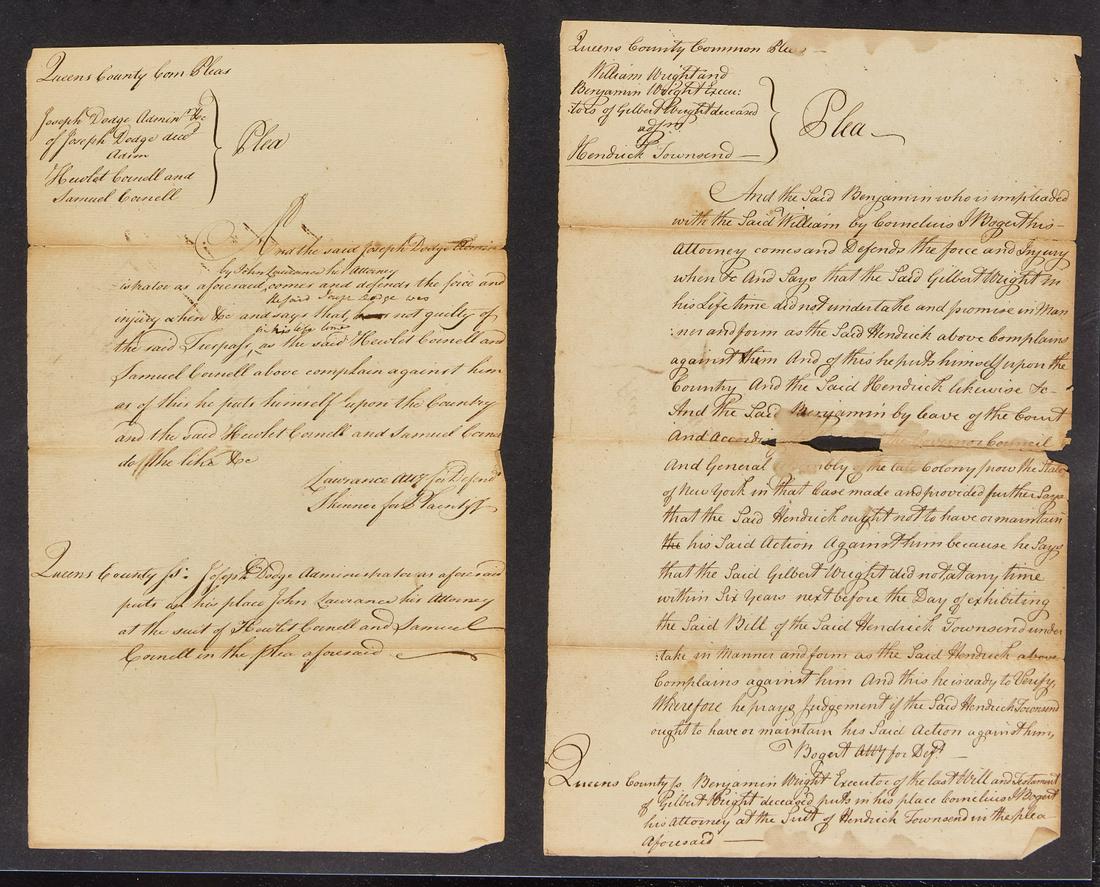 Queens County Com Pleas
Joseph Dodge Admin.r &c
of Joseph Dodge dec.d
Adsm
Hewlet Cornell and
Samuel Cornell
Plea
And the said Joseph Dodge Admin
by John Lawrance his Attorney
istrator as aforesaid, comes and defends the force and
the said Joseph Dodge was
injury when &c and says that, not guilty of
in his life time
the said Trespass, as the said Hewlet Cornell and
Samuel Cornell above complain against him
as of this he puts himself upon the Country
and the said Hewlet Cornell and Samuel Cornell
do the like &c
Lawrance Atty for Defend
Skinner for Plaintiff
Queens County ss: Joseph Dodge Administrator as aforesaid
puts in his place John Lawrance his Attorney
at the suit of Hewlet Cornell and Samuel
Cornell in the plea aforesaid
Queens County Common Pleas
William Wright and
Benjamin Wright Execu:
tors of Gilbert Wright deceased
adsm
Hendrick Townsend
Plea
And the Said Benjamin who is impleaded
with the Said William by Cornelius J Bogert his
Attorney comes and Defends the force and Injury
when &c And Says that the Said Gilbert Wright in
his Life time did not undertake and promise in Man
:ner and form as the Said Hendrick above Complains
against them And of this he puts himself upon the
Country And the Said Hendrick likewise &c
And the Said Benjamin by leave of the Court
And the Governor Council
And General Assembly of the late Colony now the State
of New York in that Case made and provided further Says
that the Said Hendrick ought not to have or maintain
the his Said Action Against him because he Says
that the Said Gilbert Wright did not at any time
within Six Years next before the Day of exhibiting
the Said Bill of the Said Hendrick Townsend under
:take in Manner and form as the Said Hendrick above
Complains against him And this he is ready to Verify,
Wherefore he prays Judgement if the Said Hendrick Townsend
ought to have or maintain his Said Action against him,
Bogert Atty for Def.t
Queens County ss Benjamin Wright Executor of the last Will and Testament
of Gilbert Wright deceased puts in his place Cornelius J Bogert
his Attorney at the Suit of Hendrick Townsend in the plea
Aforesaid